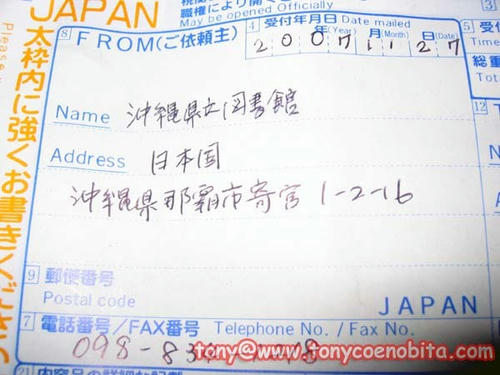 JAPAN
職権により開く
May be opened Officially
Please
太枠内に強くお書きください
8 FROM(ご依頼主)
4 受付年月日 Date mailed
2007 (Year) 11 月(Month) 27 日(Date)
5
Name 沖縄県立図書館
12
Address 日本国
沖縄県那覇市寄宮 1-2-16
9 郵便番号
Postal code
JAPAN
7 電話番号/FAX番号 Telephone No. / Fax No.
098-834
tony@www.tonycoenobita.com
21